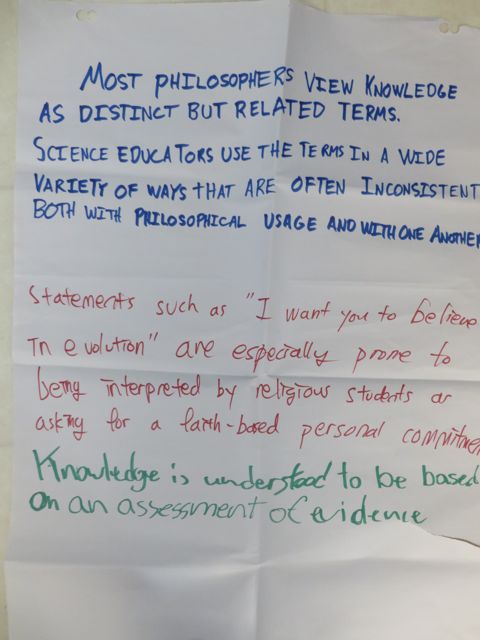 MOST PHILOSOPHERS VIEW KNOWLEDGE
AS DISTINCT BUT RELATED TERMS.
SCIENCE EDUCATORS USE THE TERMS IN A WIDE
VARIETY OF WAYS THAT ARE OFTEN INCONSISTENT
BOTH WITH PHILOSOPHICAL USAGE AND WITH ONE ANOTHER
Statements such as "I want you to believe
in evolution" are especially prone to
being interpreted by religious students as
asking for a faith-based personal commitmen
Knowledge is understood to be based
on an assessment of evidence